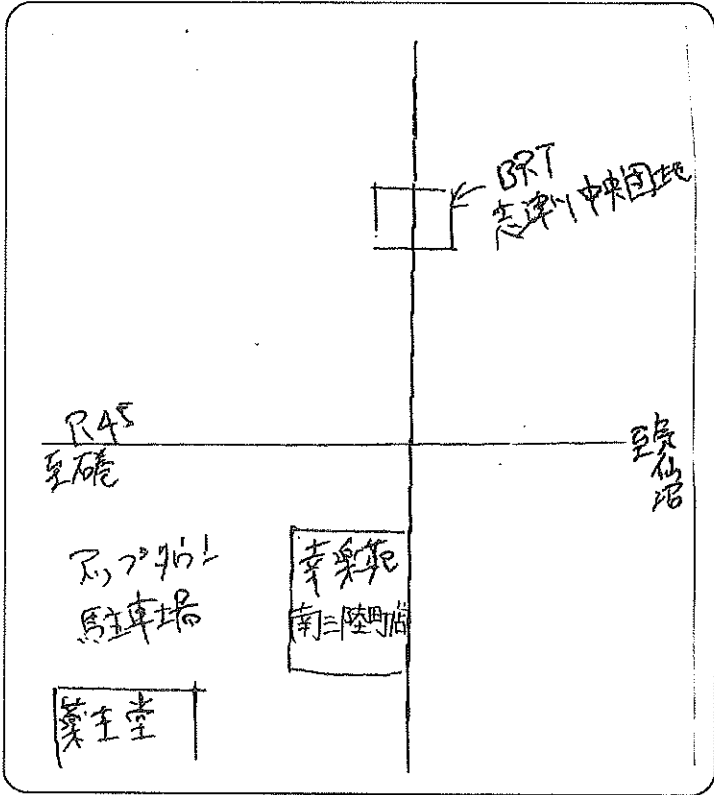 BRT
志津川中央団地
R45
至石巻
至気仙沼
アップタウン
駐車場
幸楽苑
南三陸町店
薬王堂